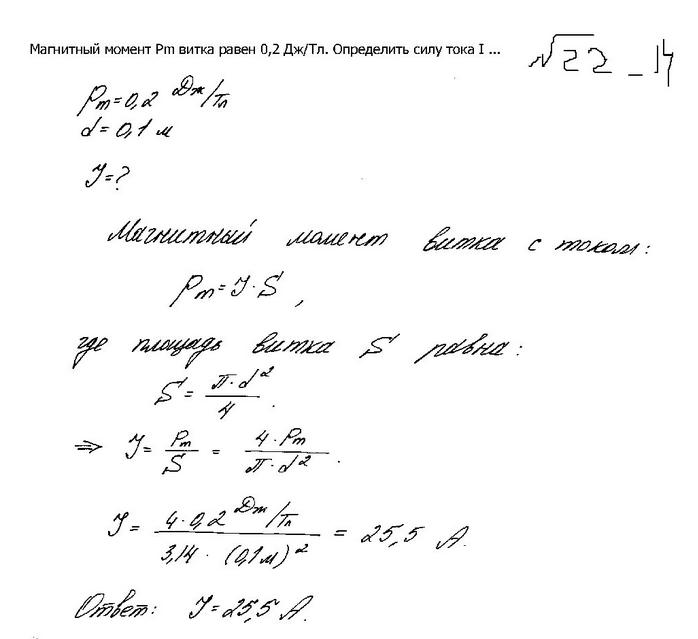 Магнитный момент Pm витка равен 0,2 Дж/Тл. Определить силу тока I ...
√22_14
Pm = 0,2 Дж/Тл
d = 0,1 м
J = ?
Магнитный момент витка с током:
Pm = J · S,
где площадь витка S равна:
S = π · d² / 4.
⇒ J = Pm / S = 4 · Pm / π · d².
J = 4 · 0,2 Дж/Тл / 3,14 · (0,1 м)² = 25,5 А.
Ответ: J = 25,5 А.